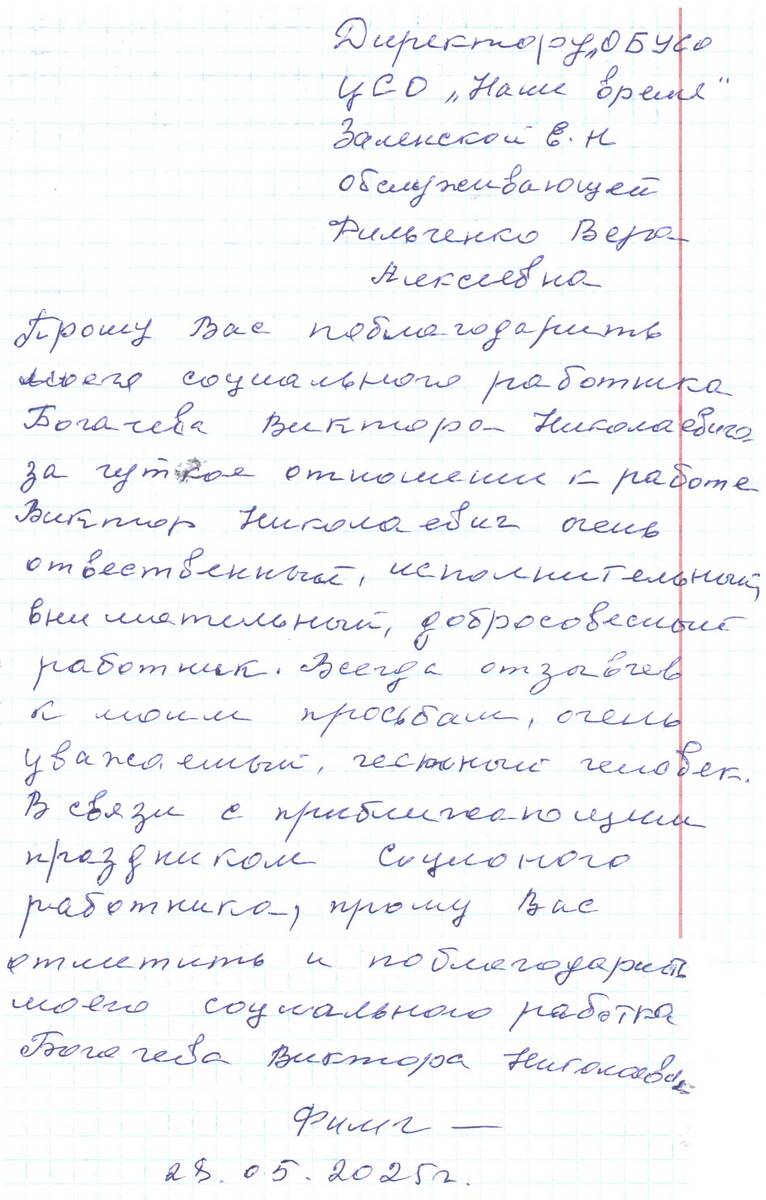 Директору „ОБУСО
ЦСО „Наше время"
Заленской Е. Н
обслуживающей
Фильченко Вера
Алексеевна
Прошу Вас поблагодарить
моего социального работника
Богачева Виктора Николаевича
за чуткое отношении к работе
Виктор Николаевич очень
отвественный, исполнительный,
внимательный, добросовесный
работник. Всегда отзывчев
к моим просьбам, очень
уважаемый, честный человек.
В связи с приближающим
праздником Соционого
работника, прошу Вас
отметить и поблагодарить
моего социального работка
Богачева Виктора Николаевич
28.05.2025г.